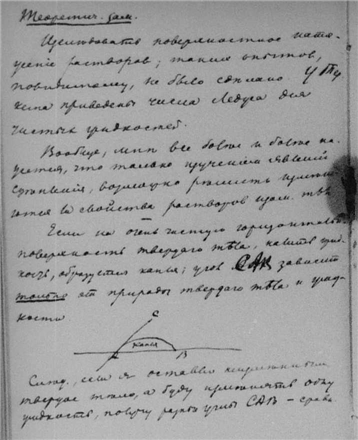 Теоретич. зам.
Изследовать поверхностное натя-
жение растворов; таких опытов,
повидимому, не было сделано. У
приведены числа для
чистых жидкостей.
Вообще, мне все более и более ка-
жется, что только изучением явлений
возможно решить
в свойства растворов
Если на очень чистую горизонтальн.
поверхность твердаго тѣла, налить жид-
кость, образуется капля; угол САВ зависит
только от природы твердаго тѣла и жид-
кости
С
капля
А В
След., если я оставлю неизменным
твердое тело, а буду одну
жидкость, получу разные углы САВ –